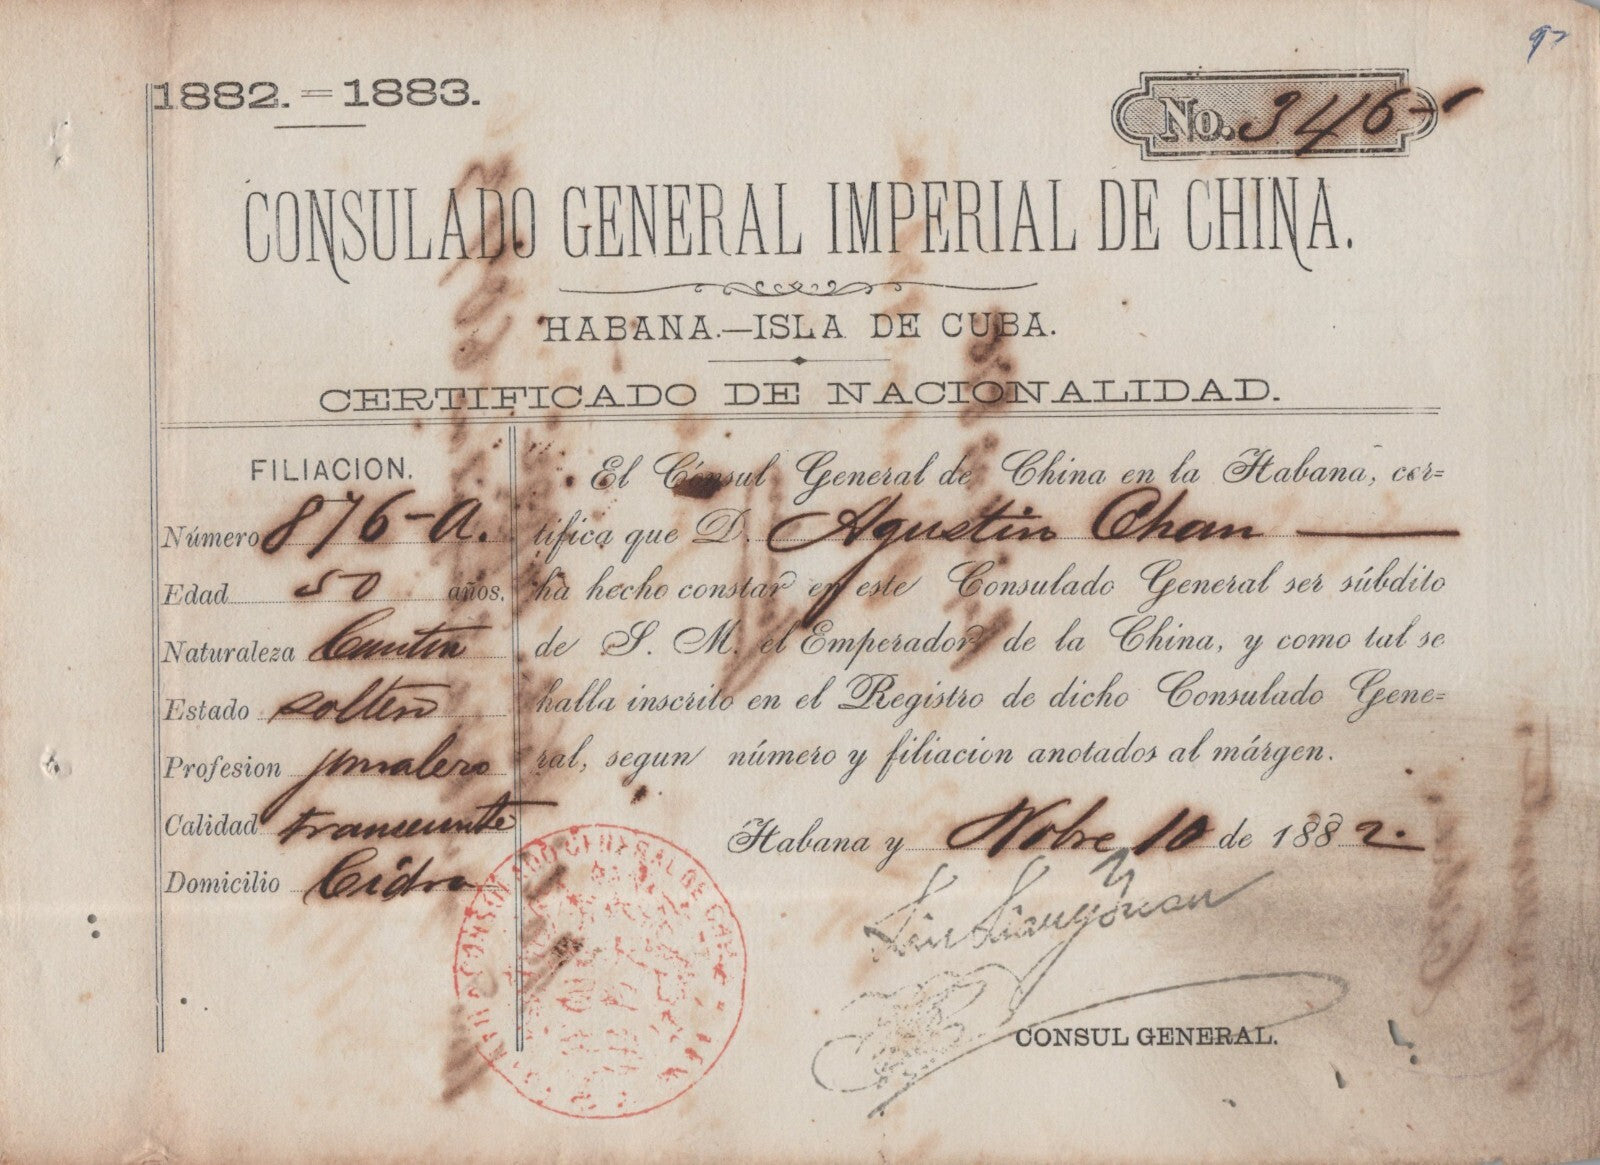 1882.=1883.
No. 346-
CONSULADO GENERAL IMPERIAL DE CHINA.
HABANA.—ISLA DE CUBA.
CERTIFICADO DE NACIONALIDAD.
FILIACION.
Número 876-A.
Edad 50 años.
Naturaleza Canton
Estado soltero
Profesion jornalero
Calidad transeunte
Domicilio Cidra
El Cónsul General de China en la Habana, cer=
tifica que D. Agustin Chan
ha hecho constar en este Consulado General ser súbdito
de S. M. el Emperador de la China, y como tal se
halla inscrito en el Registro de dicho Consulado Gene=
ral, segun número y filiacion anotados al márgen.
Habana y Nobre 10 de 1882.
Liu Liang Yuan
CONSUL GENERAL.
CONSULADO GENERAL DE CHINA